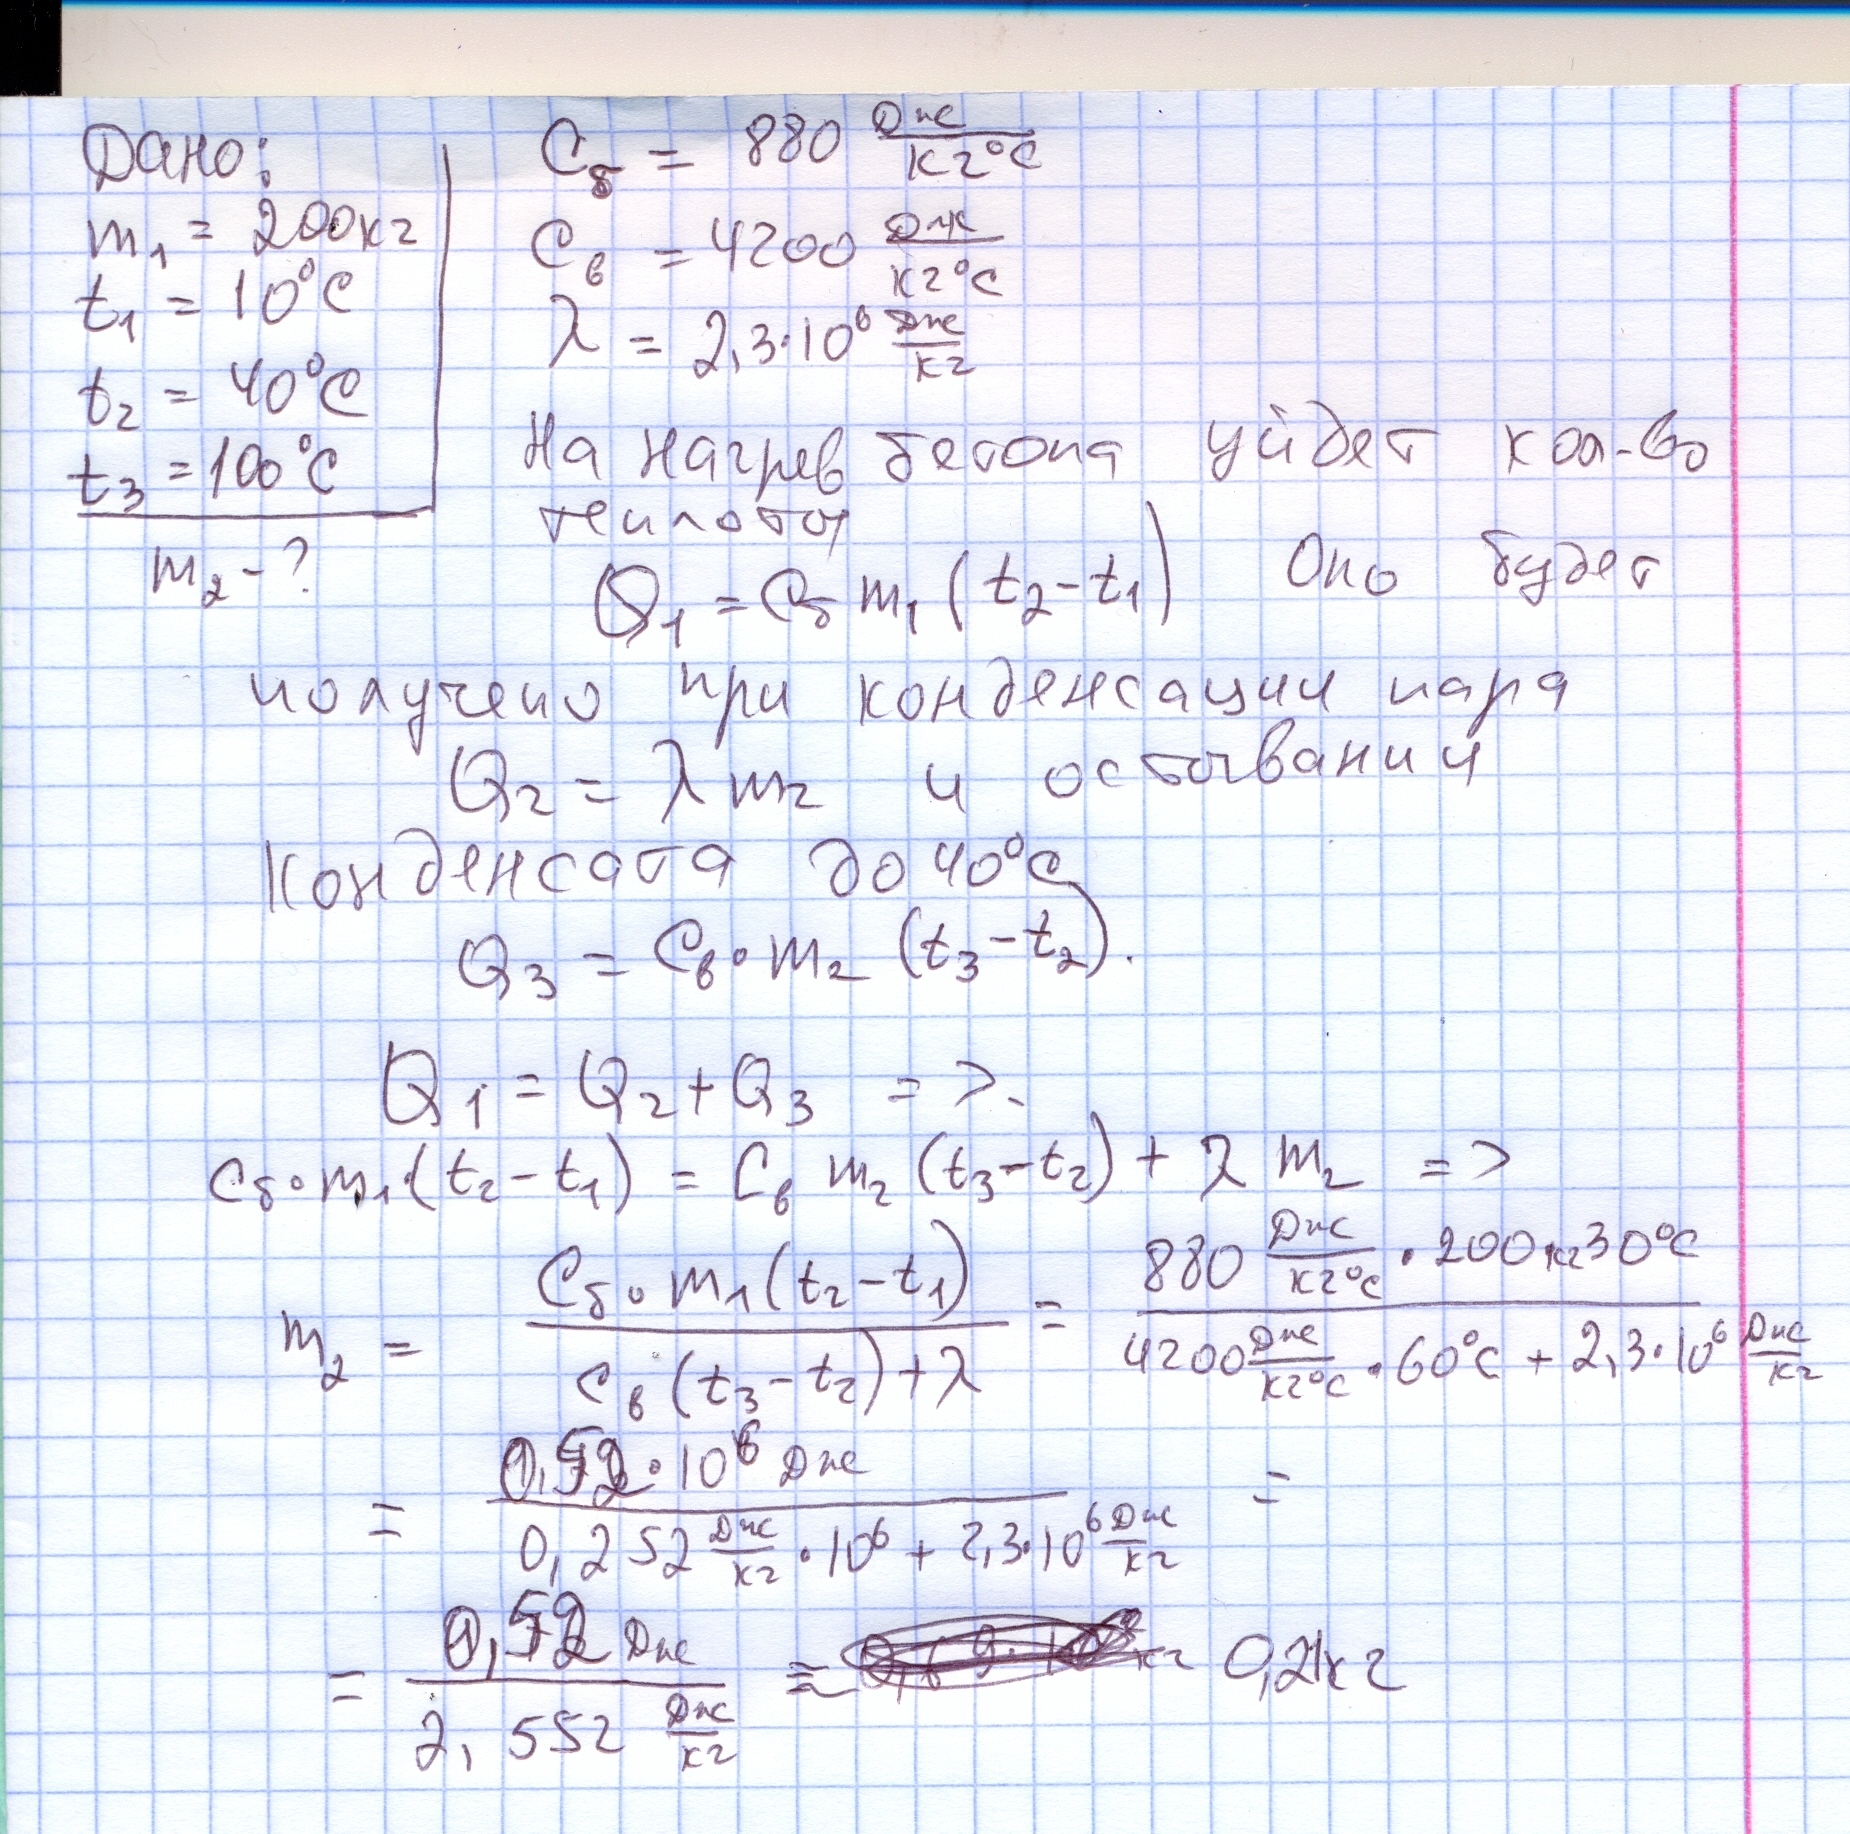 Дано:
m₁ = 200кг
t₁ = 10°C
t₂ = 40°C
t₃ = 100°C
m₂ - ?
Cб = 880 Дж/кг°C
Cв = 4200 Дж/кг°C
λ = 2,3·10⁶ Дж/кг
На нагрев бетона уйдет кол-во
теплоты
Q₁ = Cб m₁ (t₂ - t₁) Оно будет
получено при конденсации пара
Q₂ = λ m₂ и остывании
конденсата до 40°C
Q₃ = Cв · m₂ (t₃ - t₂).
Q₁ = Q₂ + Q₃ =>
Cб · m₁ (t₂ - t₁) = Cв m₂ (t₃ - t₂) + λ m₂ =>
m₂ = Cб · m₁ (t₂ - t₁) / Cв (t₃ - t₂) + λ = 880 Дж/кг°C · 200кг 30°C / 4200 Дж/кг°C · 60°C + 2,3·10⁶ Дж/кг
= 0,52·10⁶ Дж / 0,252 Дж/кг · 10⁶ + 2,3·10⁶ Дж/кг =
= 0,52 Дж / 2,552 Дж/кг ≈ кг 0,21кг